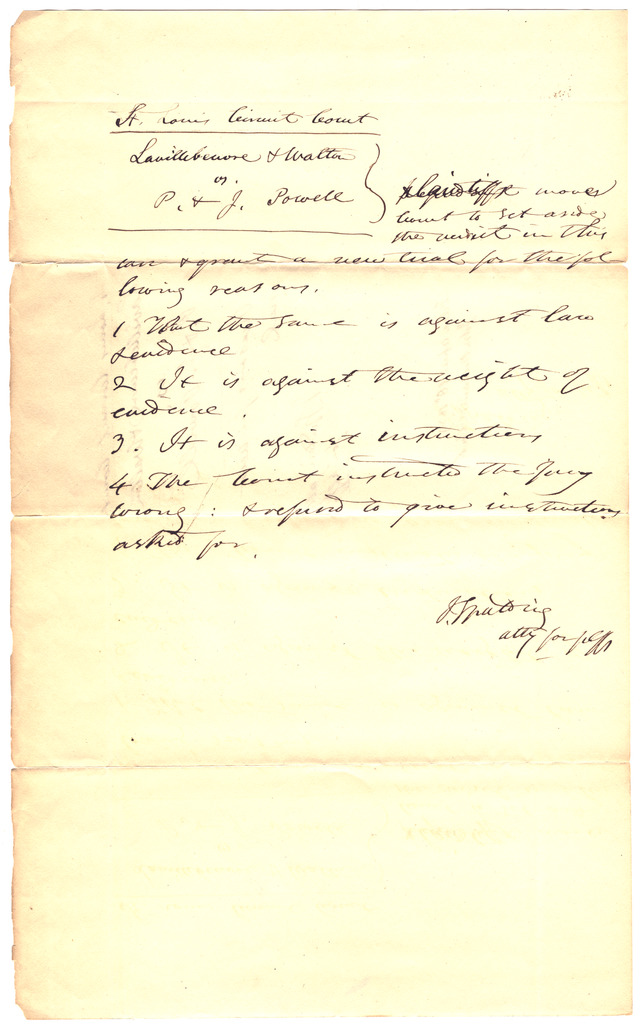 St. Louis Circuit Court
Lavillebeuvre & Walton
vs.
P. & J. Powell
plaintiffs moves
Court to set aside
the verdict in this
case & grant a new trial for the fol
lowing reasons.
1 That the same is against law
& evidence
2 It is against the weight of
evidence.
3. It is against instructions
4 The Court instructed the Jury
wrong: & refused to give instructions
asked for.
J. Spalding
atty for plffs